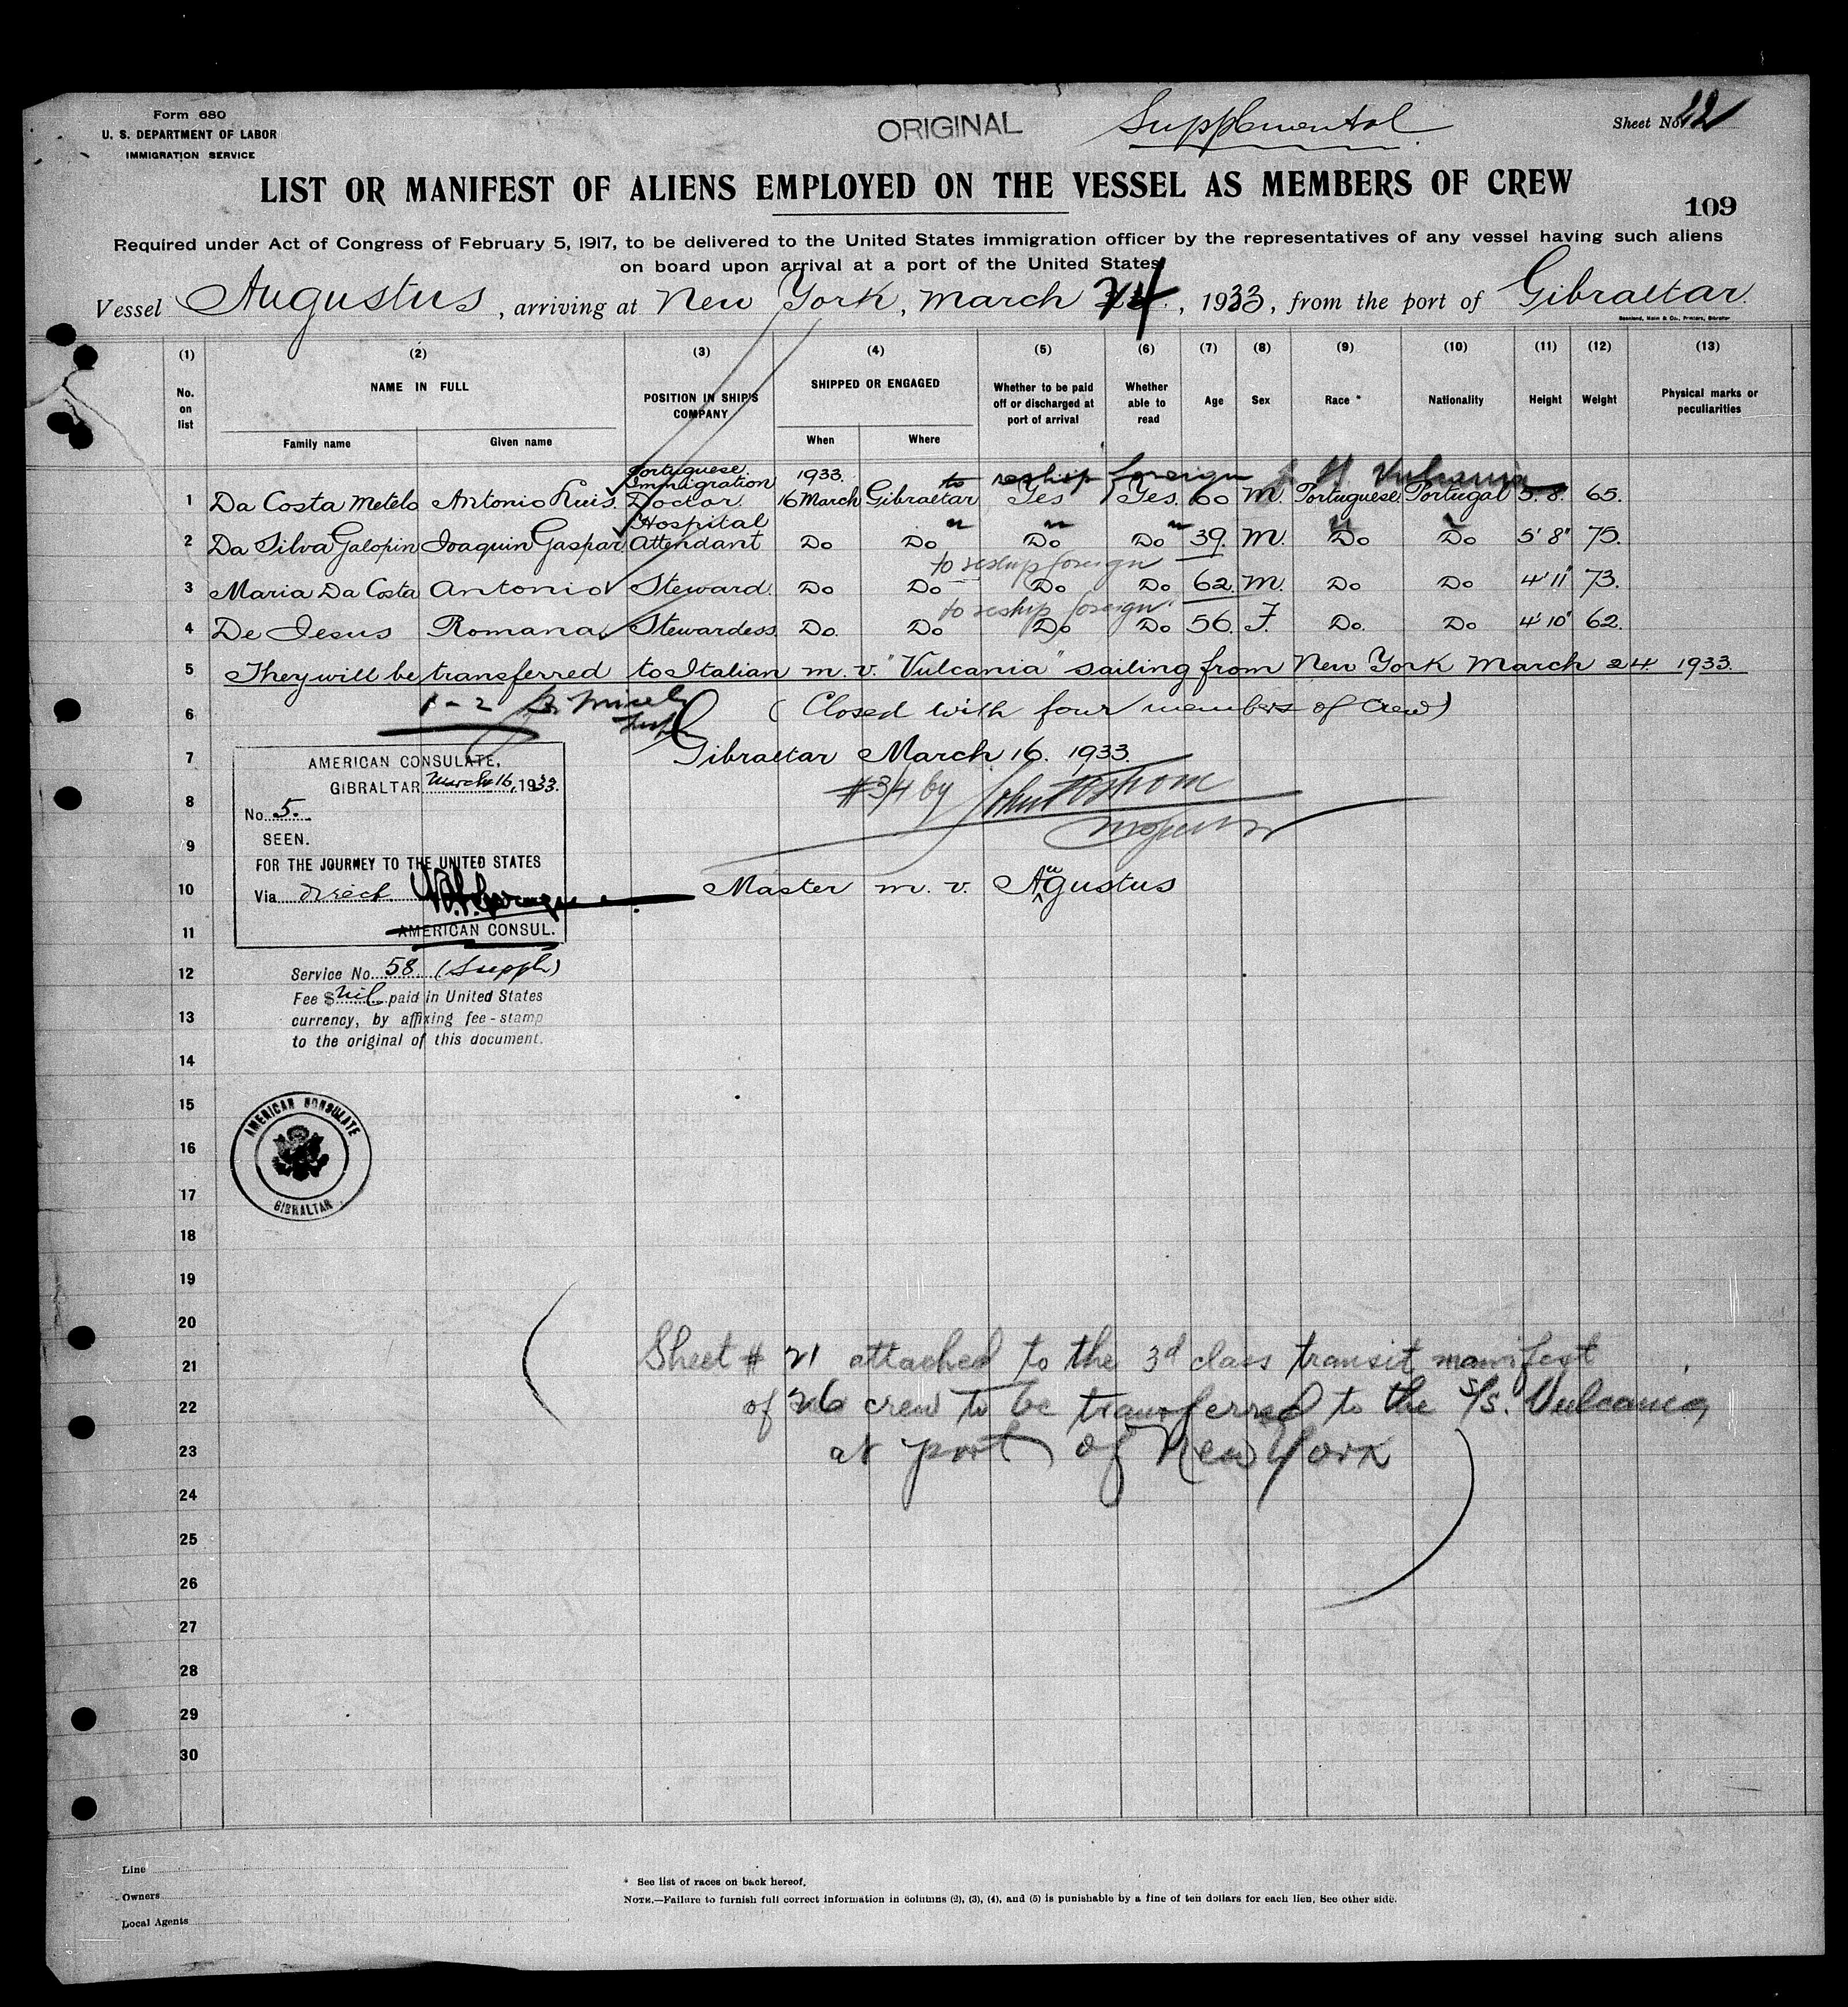 Form 680
U. S. DEPARTMENT OF LABOR
IMMIGRATION SERVICE
ORIGINAL
Supplemental
Sheet No. 22
LIST OR MANIFEST OF ALIENS EMPLOYED ON THE VESSEL AS MEMBERS OF CREW
109
Required under Act of Congress of February 5, 1917, to be delivered to the United States immigration officer by the representatives of any vessel having such aliens
on board upon arrival at a port of the United States
Vessel Augustus, arriving at New York, March 24, 1933, from the port of Gibraltar
(1) (2) (3) (4) (5) (6) (7) (8) (9) (10) (11) (12) (13)
No. on list NAME IN FULL Family name Given name POSITION IN SHIP'S COMPANY SHIPPED OR ENGAGED When Where Whether to be paid off or discharged at port of arrival Whether able to read Age Sex Race * Nationality Height Weight Physical marks or peculiarities
to reship foreign Vulcania
1 Da Costa Metelo Antonio Luis Portuguese Immigration Doctor 1933. 16 March Gibraltar Yes Yes. 60 M. Portuguese Portugal 5' 8" 65.
2 Da Silva Galopin Joaquin Gaspar Hospital Attendant Do Do Do Do 39. M. Do Do 5' 8" 75.
to reship foreign
3 Maria Da Costa Antonio Steward. Do Do Do Do 62. M. Do Do 4' 11" 73.
to reship foreign
4 De Jesus Romana Stewardess Do. Do Do Do 56. F. Do. Do 4' 10" 62.
5 They will be transferred to Italian m. v. "Vulcania" sailing from New York March 24 1933.
6 1-2 (Closed with four members of Crew)
7 Gibraltar March 16. 1933.
8 #3/4 by
9
10 Master m. v. Augustus
11
12
13
14
15
16
17
18
19
20
21
22
23
24
25
26
27
28
29
30
AMERICAN CONSULATE,
GIBRALTAR March 16, 1933.
No. 5.
SEEN.
FOR THE JOURNEY TO THE UNITED STATES
Via direct
AMERICAN CONSUL.
Service No. 58 (Suppl)
Fee $ nil paid in United States
currency, by affixing fee-stamp
to the original of this document.
AMERICAN CONSULATE
GIBRALTAR
Sheet # 21 attached to the 3d class transit manifest
of 26 crew to be transferred to the S/S. Vulcania
at port of New York
Line
Owners
Local Agents
* See list of races on back hereof.
NOTE.—Failure to furnish full correct information in columns (2), (3), (4), and (5) is punishable by a fine of ten dollars for each lien. See other side.